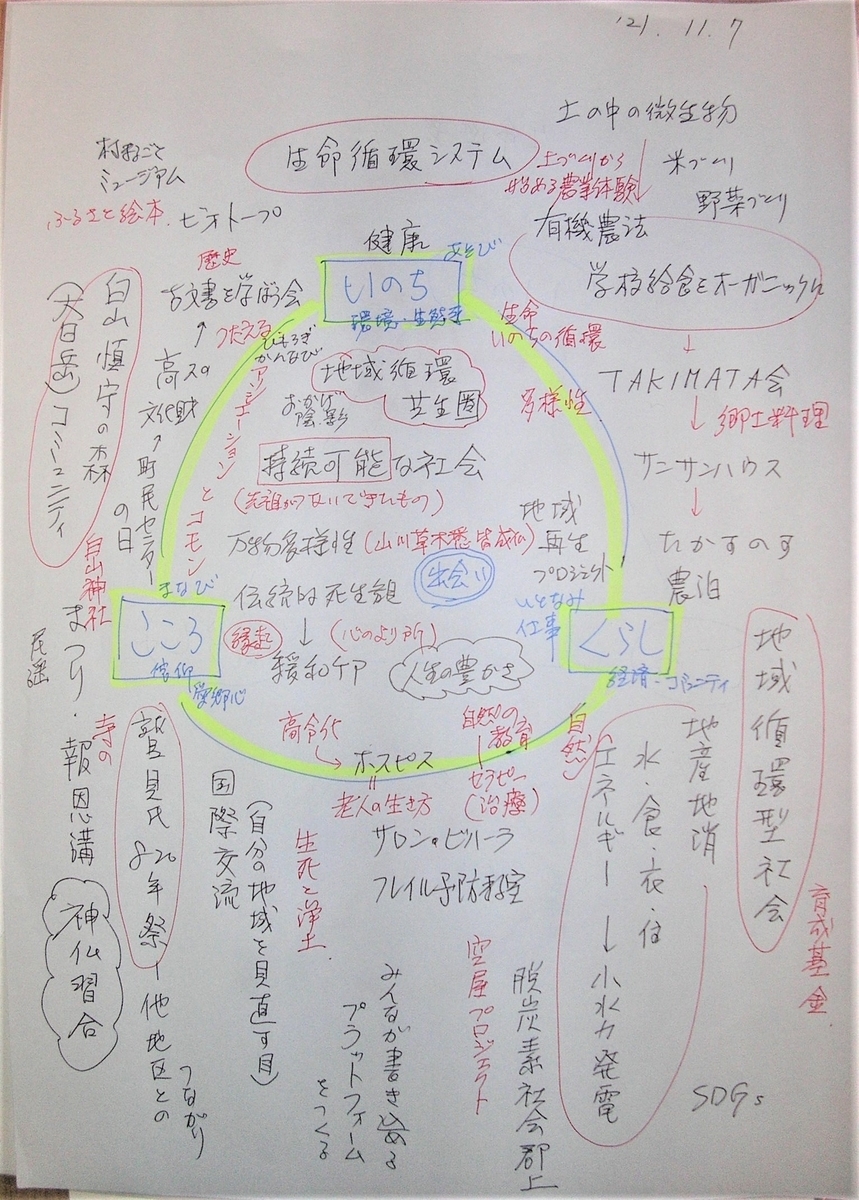 '21.11.7
土の中の微生物
生命循環システム
土づくりから
始める農業体験
米づくり
野菜づくり
有機農法
学校給食をオーガニックに
村まるごと
ミュージアム
ふるさと絵本
ビオトープ
健康
あそび
いのち
環境・生態系
歴史
古文書を学ぼう会
つたえる
ひもろぎ
かんなび
生命
いのちの循環
白山慎守の森
(大日岳)コミュニティ
高スの
文化財
町民センター
の日
アソシエーションとコモン
地域循環
共生圏
おかげ
陰影
多様性
TAKIMATA会
郷土料理
持続可能な社会
(先祖がつないできたもの)
サンサンハウス
万物多様性(山川草木悉皆成仏)
地域
再生
プロジェクト
たかすのす
農泊
伝統的死生観
出会い
いとなみ
仕事
白山神社
まなび
こころ
信仰
愛郷心
縁起
(心のより所)
緩和ケア
人生の豊かさ
くらし
経済・コミュニティ
民謡
まつり・報恩講
寺の
鷲見氏820年祭ー他地区との
つながり
神仏習合
高令化
ホスピス
老人の生き方
自然の
教育
セラピー
(治療)
サロン・ビハーラ
フレイル予防教室
国際交流
(自分の地域を見直す目)
生死と浄土
みんなが書き込める
プラットフォーム
をつくる
空屋プロジェクト
脱炭素社会郡上
自然
地産地消
水・食・衣・住
エネルギー→小水力発電
地域循環型社会
育成基金
SDGs